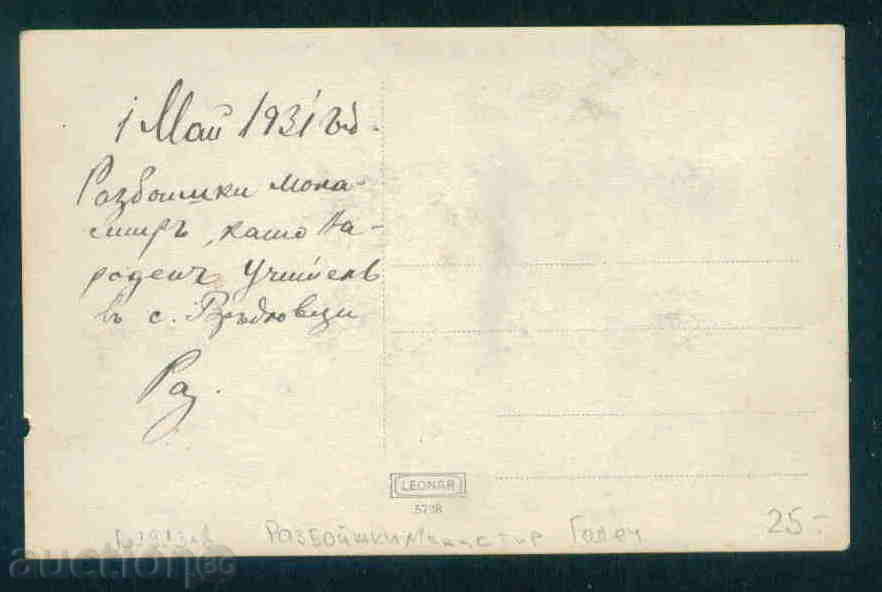 1 Май 1931 год.
Разбоишки мона-
стиръ, като на-
роденъ учителъ
въ с. Връдловци
Раз.
LEONAR
5798
РАЗБОЙШКИ Манастир Годеч 25-
аукционбг